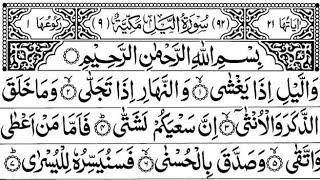 اٰیَاتُهَا ۲۱ (۹۲) سُوْرَةُ الَّیْلِ مَكِّیَّةٌ (۹) رُكُوْعُهَا ۱
بِسْمِ اللهِ الرَّحْمٰنِ الرَّحِیْمِ
وَالَّیْلِ اِذَا یَغْشٰی ۙ۝۱ وَالنَّهَارِ اِذَا تَجَلّٰی ۙ۝۲ وَمَا خَلَقَ
الذَّكَرَ وَالْاُنْثٰۤی ۙ۝۳ اِنَّ سَعْیَكُمْ لَشَتّٰی ؕ۝۴ فَاَمَّا مَنْ اَعْطٰی
وَاتَّقٰی ۙ۝۵ وَصَدَّقَ بِالْحُسْنٰی ۙ۝۶ فَسَنُیَسِّرُهٗ لِلْیُسْرٰی ؕ۝۷